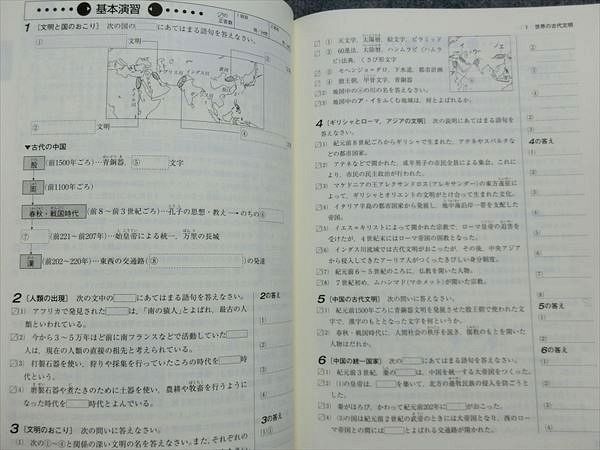 基本演習
1 [文明と国のおこり] 次の図の□にあてはまる語句を答えなさい。
①
文明
インダス川
②
文明
④
▼古代の中国
殷 (前1500年ごろ)…青銅器, ⑤ 文字
周 (前1100年ごろ)
春秋・戦国時代 (前8〜前3世紀ごろ)…孔子の思想・教え→のちの⑥
⑦ (前221〜前207年)…始皇帝による統一, 万里の長城
漢 (前202〜220年)…東西の交通路(⑧ )の発達
2 [人類の出現] 次の文中の□にあてはまる語句を答えなさい。
(1) アフリカで発見された□は,「南の猿人」とよばれ, 最古の人
類といわれている。
(2) 今から3〜5万年ほど前に南フランスなどで活動していた□
人は, 現在の人類の直接の祖先と考えられている。
(3) 打製石器を使い, 狩りや採集を行っていたころの時代を□時
代という。
(4) 磨製石器や煮たきのために土器を使い, 農耕や牧畜を行うように
なった時代を□時代とよんでいる。
2の答え
3 [文明のおこり] 次の問いに答えなさい。
(1) 次の①〜④と関係の深い文明の名を答えなさい。また, それぞれの
3の答え
1 世界の古代文明
① 天文学, 太陽暦, 絵文字, ピラミッド
② 60進法, 太陰暦, ハンムラビ(ハムラ
ビ)法典, くさび形文字
③ モヘンジョ=ダロ, 下水道, 都市計画
④ 殷王朝, 甲骨文字, 青銅器
(2) 地図中の
の川の名を答えなさい。
(3) 地図中のア・イをふくむ地域は, 何とよばれるか。
4 [ギリシャとローマ, アジアの文明] 次の説明にあてはまる語句を
答えなさい。
(1) 紀元前8世紀ごろからギリシャで生まれた, アテネやスパルタな
どの都市国家。
(2) アテネなどで開かれた, 成年男子の市民全員による集会。これによ
り, 市民の民主政治が行われた。
(3) マケドニアの王アレクサンドロス(アレキサンダー)の東方遠征に
よって, ギリシャとオリエントの文明がとけ合って生まれた文化。
(4) イタリア半島の都市国家から発展し, 地中海沿岸一帯を支配した帝
国。
(5) イエス=キリストによって開かれた宗教で, ローマ皇帝の迫害を
受けたが, 4世紀末にはローマ帝国の国教となった。
(6) インダス川流域では古代文明がおこったが, その後, 中央アジア
から侵入してきたアーリア人がつくったきびしい身分制度。
(7) 紀元前6〜5世紀のころに, 仏教を開いた人物。
(8) 7世紀初め, ムハンマド(マホメット)が開いた宗教。
4の答え
5 [中国の古代文明] 次の問いに答えなさい。
(1) 紀元前1500年ごろに青銅器文明を発展させた殷王朝で使われた文
字で, 漢字のもととなった文字を何というか。
(2) 春秋・戦国時代に, 人間社会の秩序を説き, 儒教のもとを開いた
人物はだれか。
5の答え
6 [中国の統一国家] 次の□にあてはまる語句を答えなさい。
(1) 紀元前3世紀, 秦の□は, 中国を統一する大帝国をつくった。
(2) (1)の皇帝は, □を築いて, 北方の遊牧民族の侵入を防ごうとし
た。
(3) 秦がほろび, かわって紀元前202年に□がおこった。
(4) (3)の国は紀元前2世紀の武帝のときには大帝国となり, 西のロー
マ帝国との間には□とよばれる交通路が開かれた。
6の答え